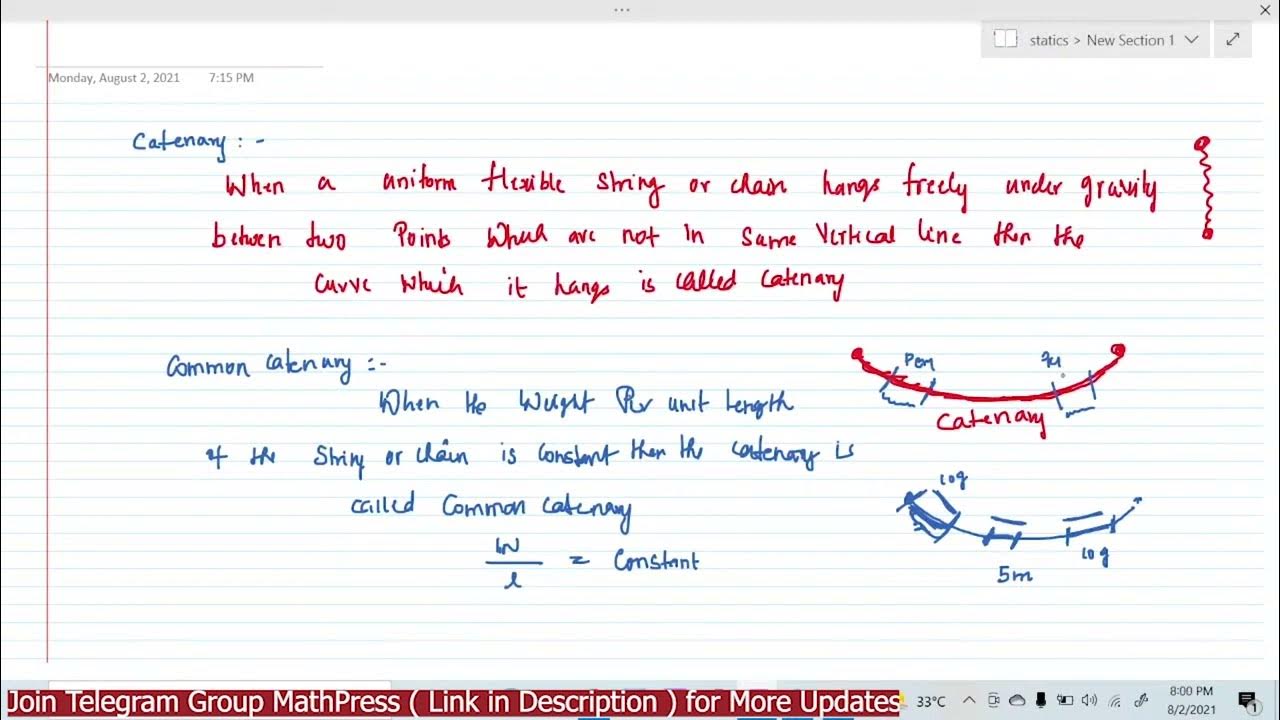 statics > New Section 1
Monday, August 2, 2021 7:15 PM
Catenary : -
When a uniform flexible string or chain hangs freely under gravity
between two Points which are not in same vertical line then the
curve which it hangs is called catenary
Common catenary :-
When the weight Per unit length
of the string or chain is constant then the catenary is
called common catenary
W
l
= constant
Catenary
10g
10g
5m
Join Telegram Group MathPress ( Link in Description ) for More Updates
33°C
8:00 PM
8/2/2021
1